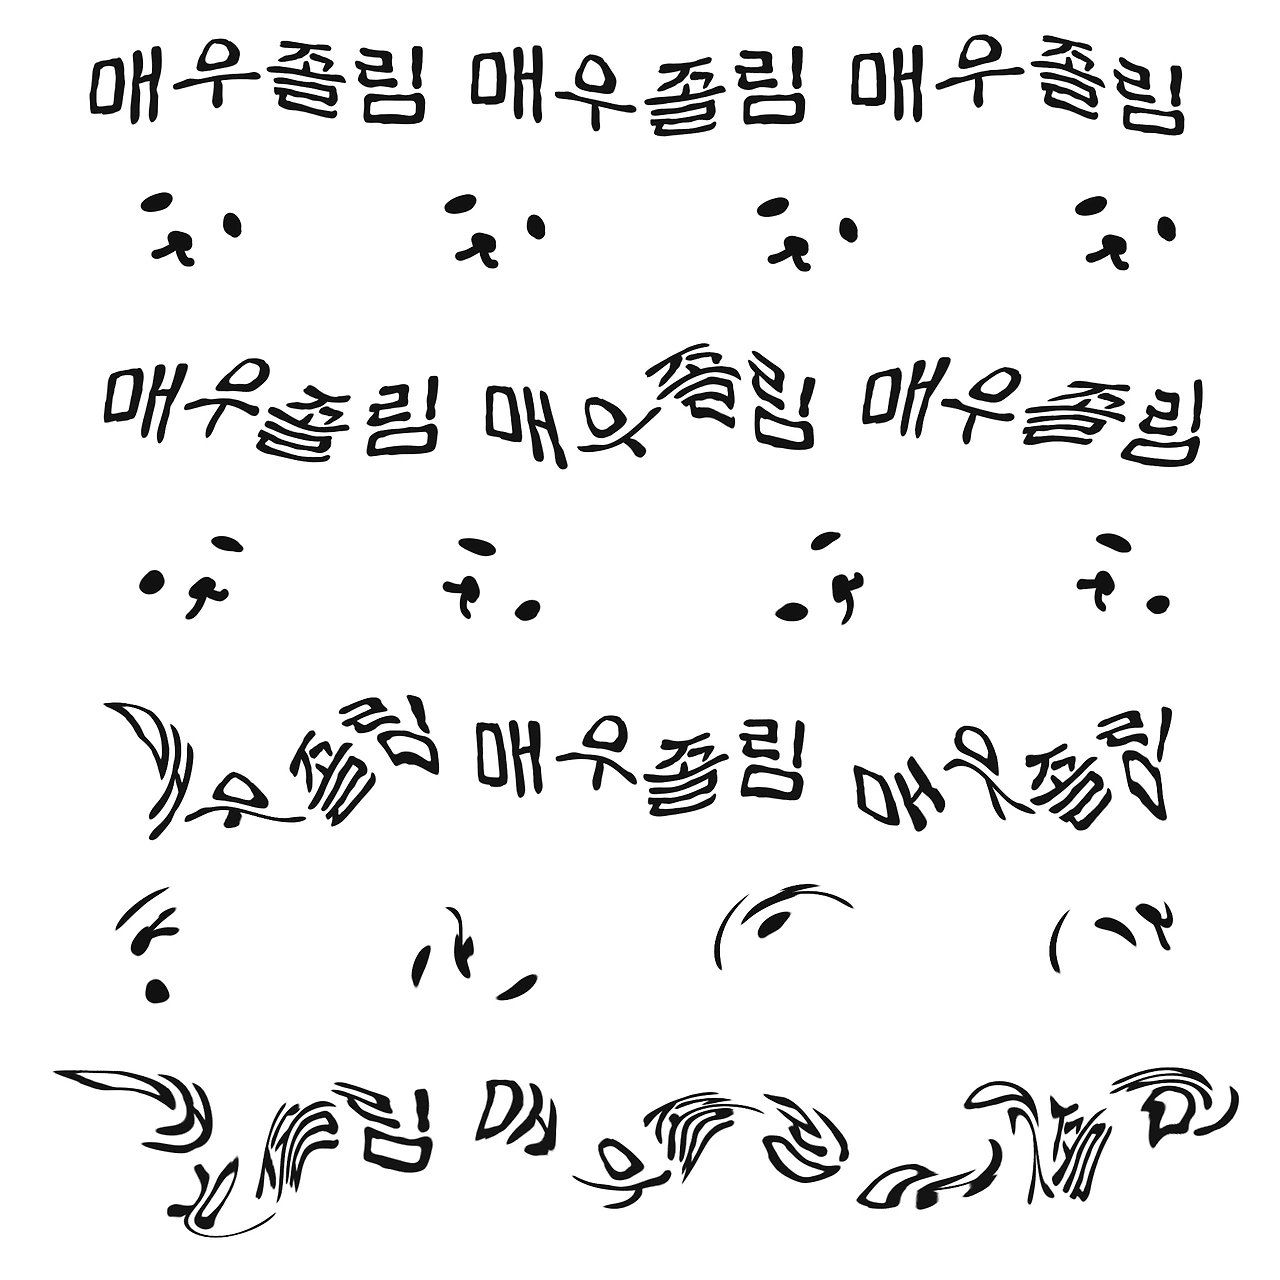 매우졸림 매우졸림 매우졸림
매우졸림 매우졸림 매우졸림
매우졸림 매우졸림 매우졸림
림 매우졸림